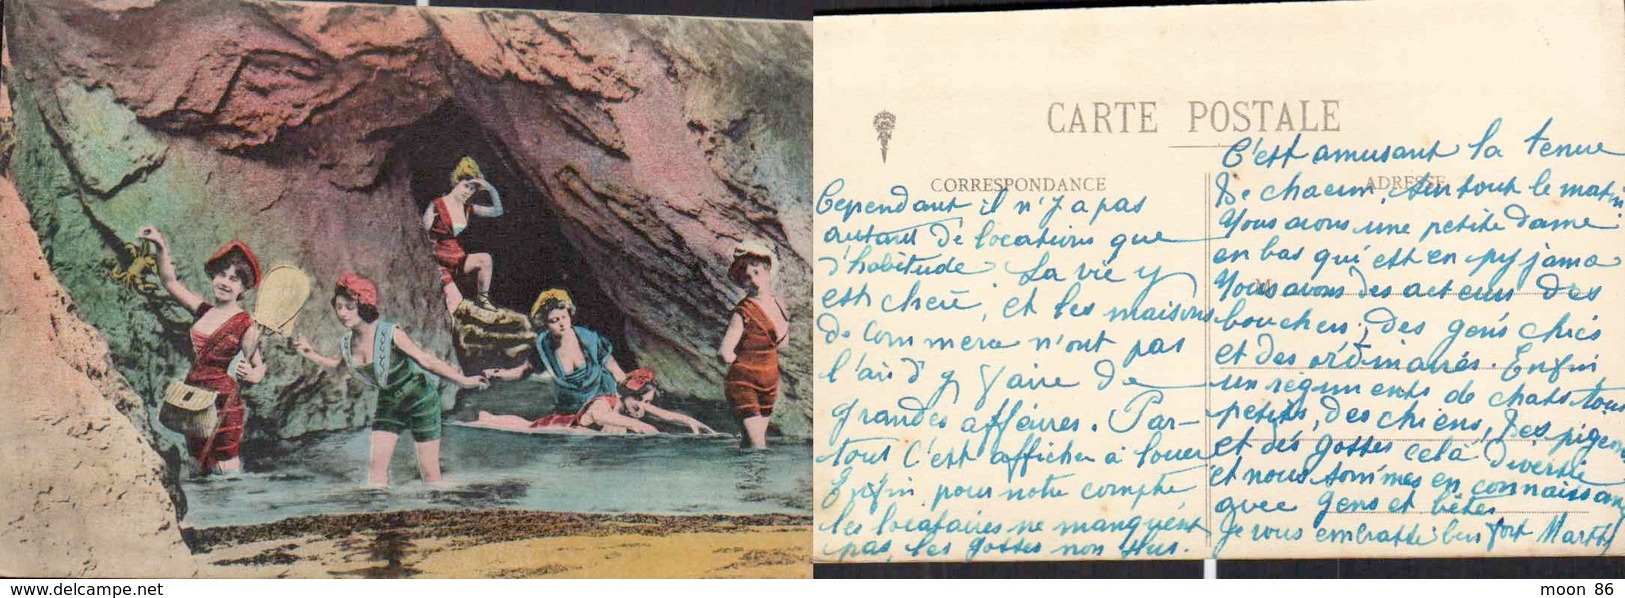 CARTE POSTALE
CORRESPONDANCE
ADRESSE
Cependant il n'y a pas
autant de locations que
d'habitude. La vie y
est chère, et les maisons
de commerce n'ont pas
l'air d'y faire de
grandes affaires. Par-
tout c'est afficher à louer
Enfin, pour notre compte
les locataires ne manquent
pas, les gosses non plus.
C'est amusant la tenue
de chacun, surtout le matin
Nous avons une petite dame
en bas qui est en pyjama
Nous avons des acteurs des
bouchers, des gens chics
et des ordinaires. Enfin
un régiments de chats tous
petits, des chiens, des pigeons
et des gosses cela diversifie
et nous sommes en connaissance
avec gens et bêtes
Je vous embrasse bien fort Marthe
moon 86